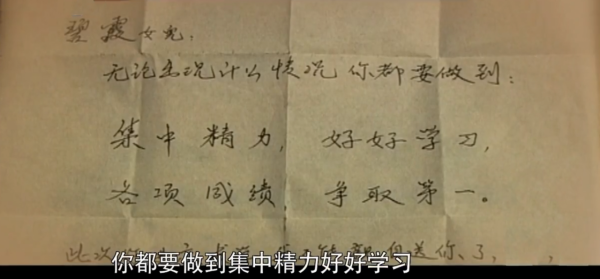 碧霞女儿:
无论出现什么情况 你都要做到:
集中精力, 好好学习,
各项成绩 争取第一。
此次
你都要做到集中精力好好学习